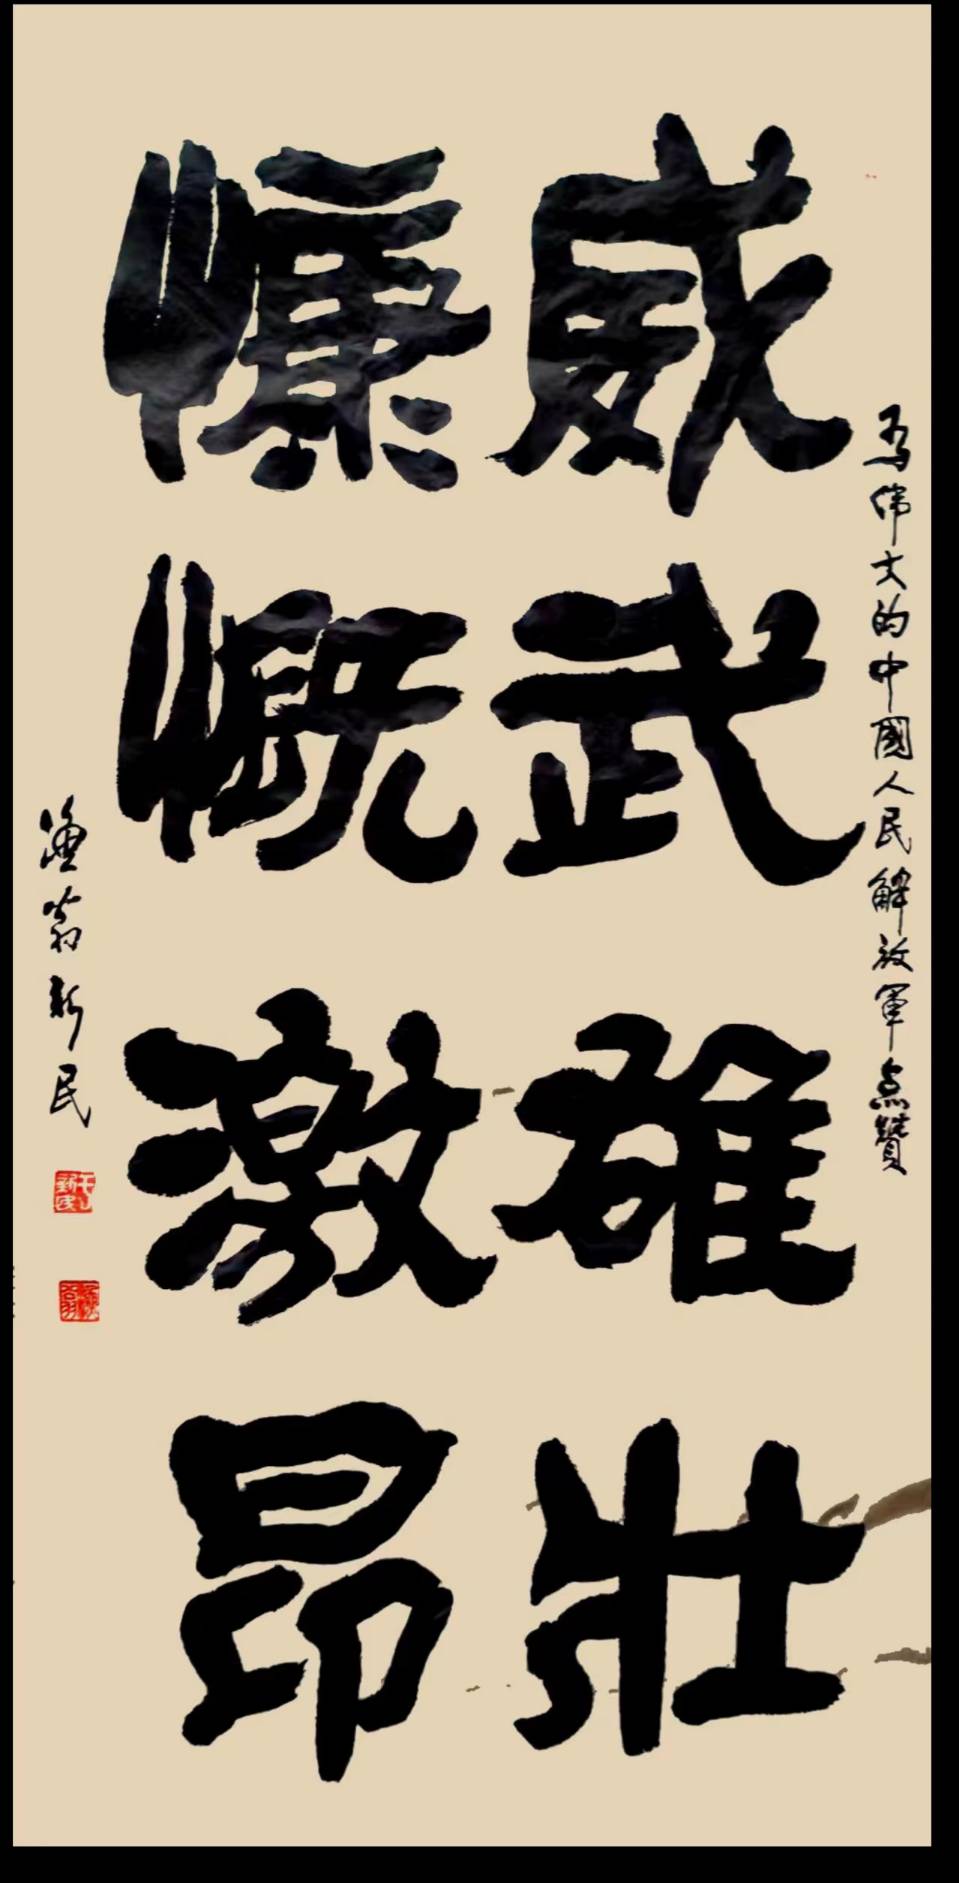 为偉大的中國人民解放軍点贊
威武雄壯
慷慨激昂
漁翁新民